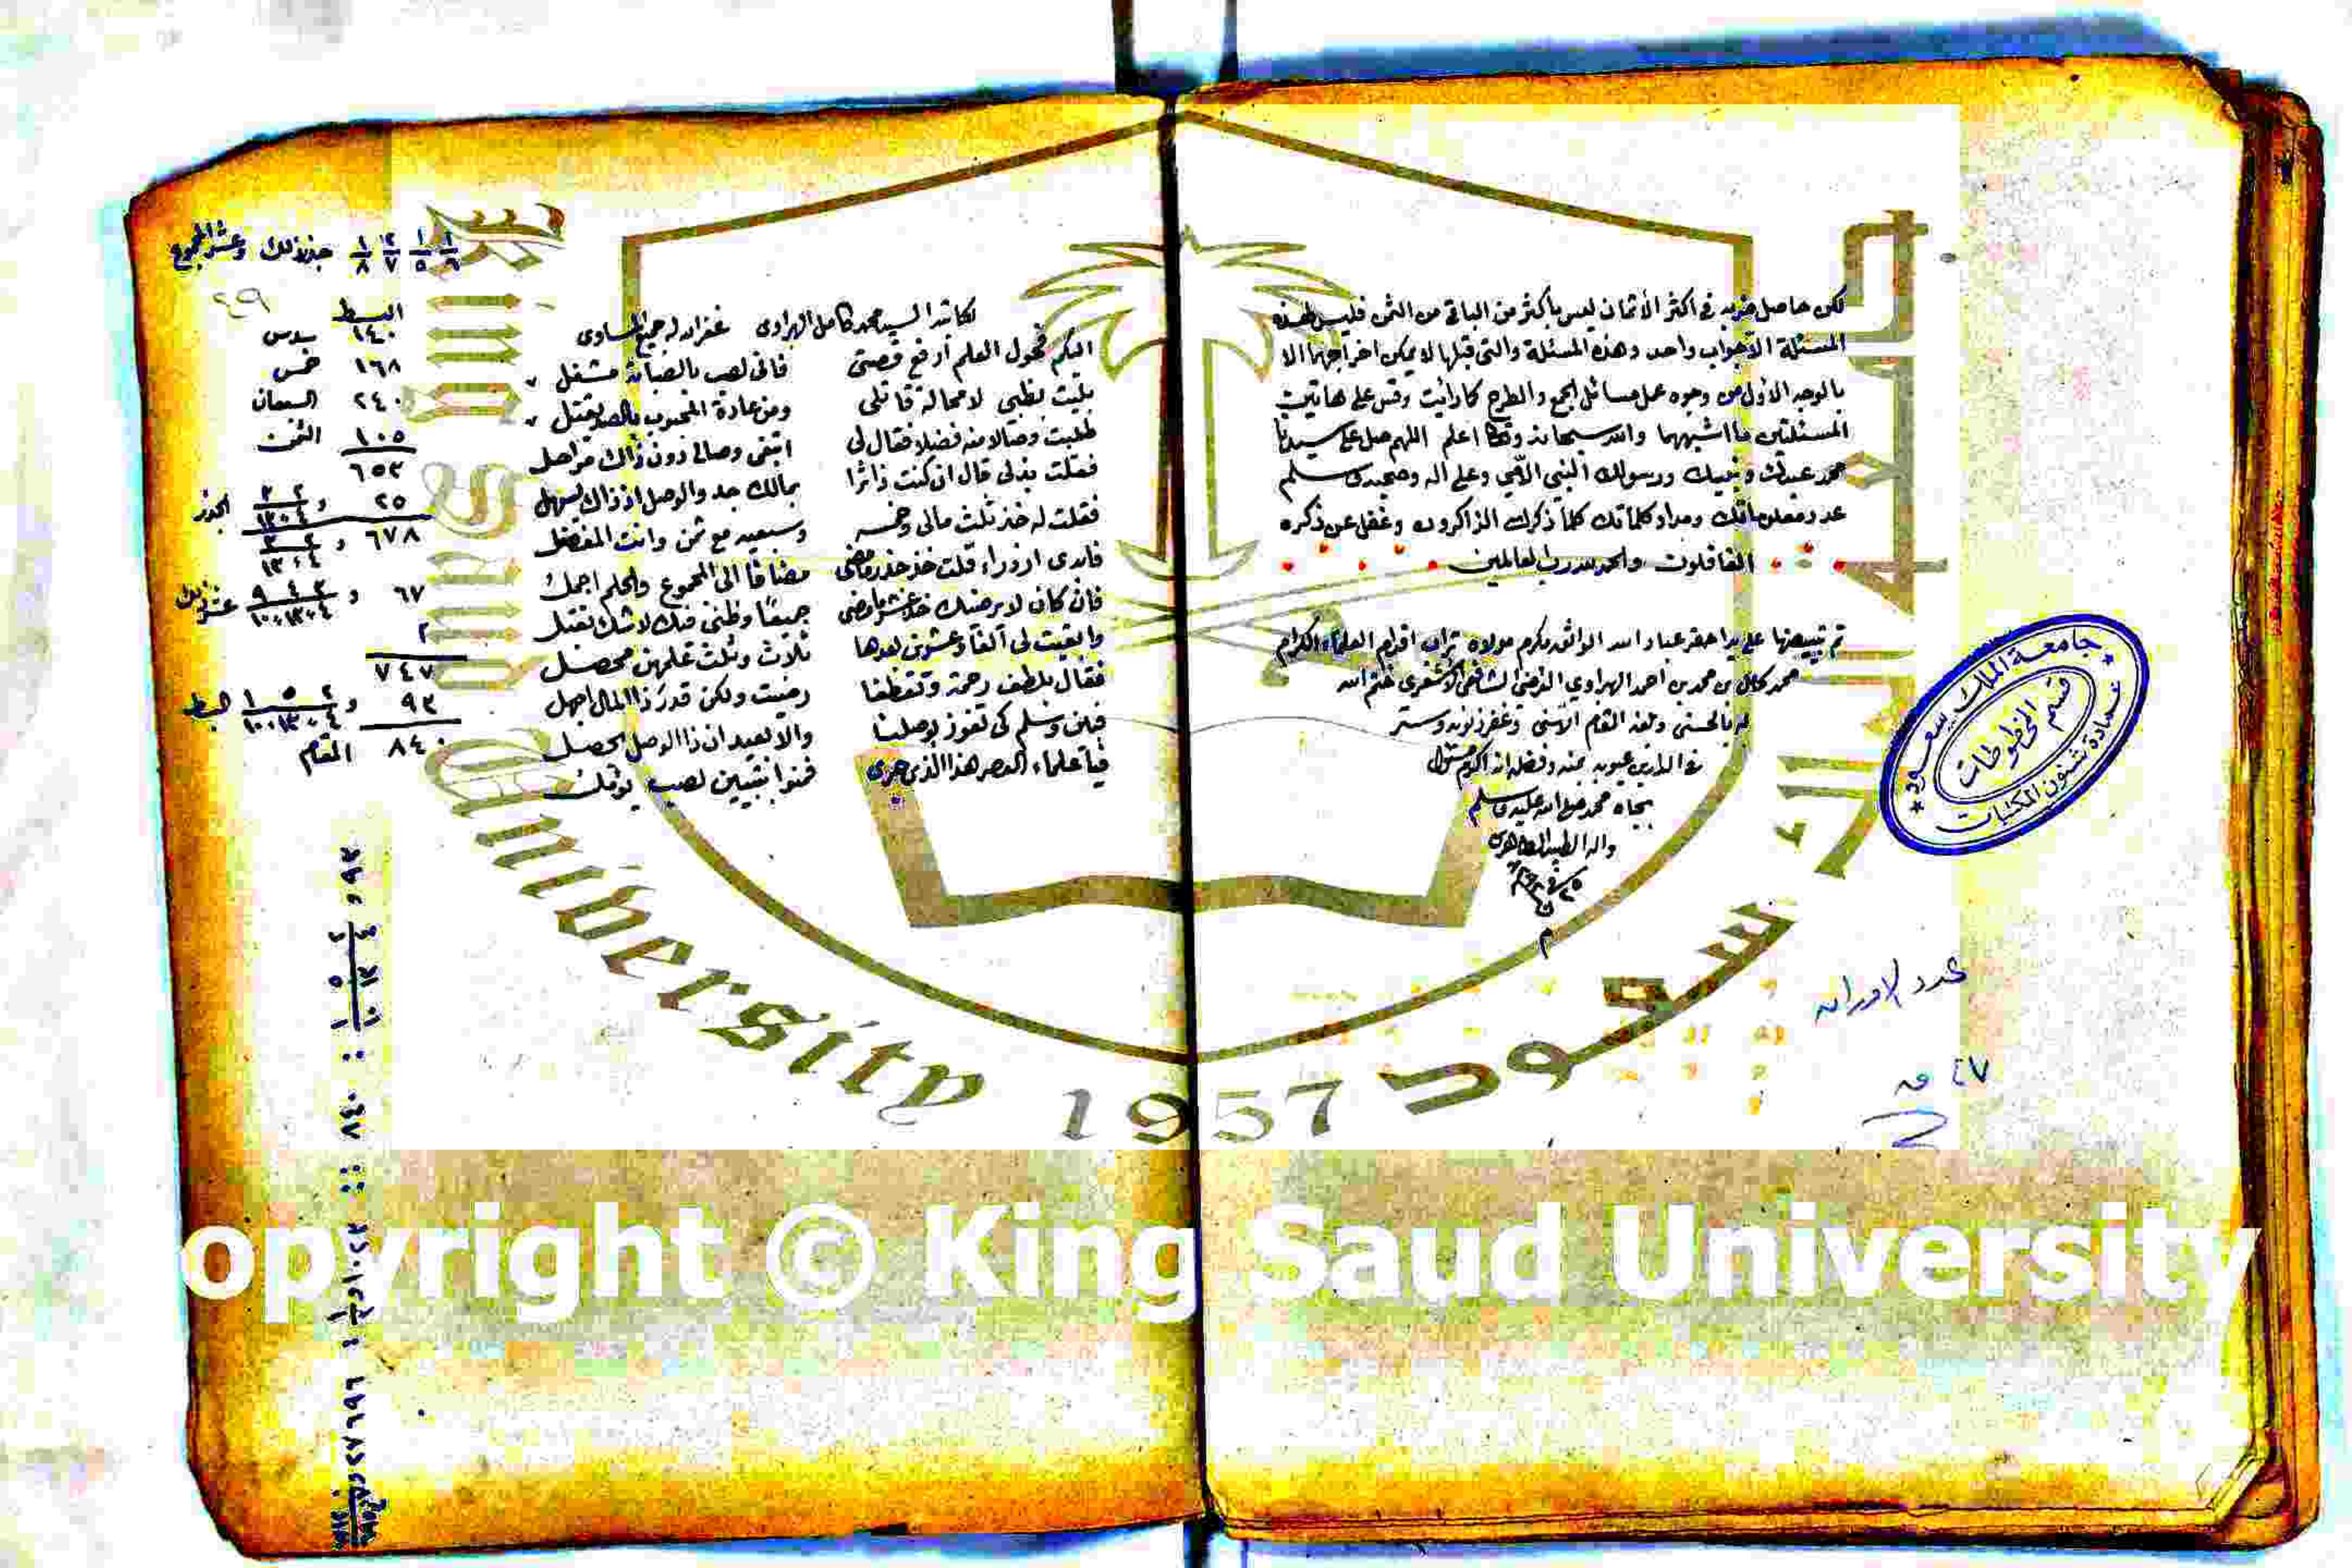 لكن حاصل ضربه في اكثر الأثمان ليس بأكثر من الباقي من الثمن فليس لهذه
المسئلة الاجواب واحد وهذه المسئلة والتي قبلها لا يمكن اخراجهما الا
بالوجه الاول من وجوه عمل مسائل الجمع والطرح كما رأيت وقس على هاتين
المسئلتين ما اشبههما والله سبحانه وتعالى اعلم اللهم صل على سيدنا
محمد عبدك ونبيك ورسولك النبي الأمي وعلى اله وصحبه وسلم
عدد معلوماتك ومداد كلماتك كلما ذكرك الذاكرون وغفل عن ذكره
الغافلون والحمد لله رب العالمين
تم تبييضها على يد احقر عباد الله الواثق بكرم مولاه تراب اقدام العلماء الكرام
محمد كامل بن محمد بن احمد الهراوي الشافعي الأشعري ختم الله
له بالحسنى وبلغه المقام الأسنى وغفر ذنوبه وستر
في الدارين عيوبه بمنه وفضله انه اكرم مسئول
بجاه محمد صلى الله عليه وسلم
واله الطيبين الطاهرين
م
جامعة الملك سعود
قسم المخطوطات
عمادة شئون المكتبات
عدد الاوراق
٤٧ ق
لكاتبه السيد محمد كامل الهراوى غفر الله له جميع المساوى
اليكم فحول العلم أرفع قصتى فانى لصب بالصبابة مشغل
بليت بظبى لا محالة قاتلى ومن عادة المحبوب بالصد يقتل
طلبت وصالا منه فضلا فقال لى اتبغى وصالى دون ذاك مراحل
فقلت بذلى قال ان كنت زائرا بمالك جد والوصل اذ ذاك يسهل
فقلت له خذ ثلث مالى وخمسه وسبعيه مع ثمن وانت المفضل
فابدى ازورارا قلت خذ جذر ما مضى مضافا الى المجموع والحلم اجمل
فان كان لا يرضيك خذ عشر ما مضى جميعًا وظنى فيك لا شك تقبل
وابقيت لى ألفا وعشرين بعدها ثلاث وثلث علهن محصل
فقال بلطف رحمة وتعطفا رضيت ولكن قدر ذا المال اجهل
فبين وسلم كى تفوز بوصلنا والا بعيد ان ذا الوصل يحصل
فيا علماء العصر هذا الذى جرى فمنوا بتبيين لصب يوقل
١/٦ ١/٥ ٢/٧ ١/٨ جذر ذلك وعشر المجموع
٤٩
البسط
١٤٠ سدس
١٦٨ خمس
٢٤٠ السبعان
١٠٥ الثمن
٦٥٣
٢٥ و الجذر
٦٧٨ و
٦٧ و
٢
٧٤٧
٩٣ و البسط
٨٤٠ المقام
King Saud University
1957
opyright © King Saud University